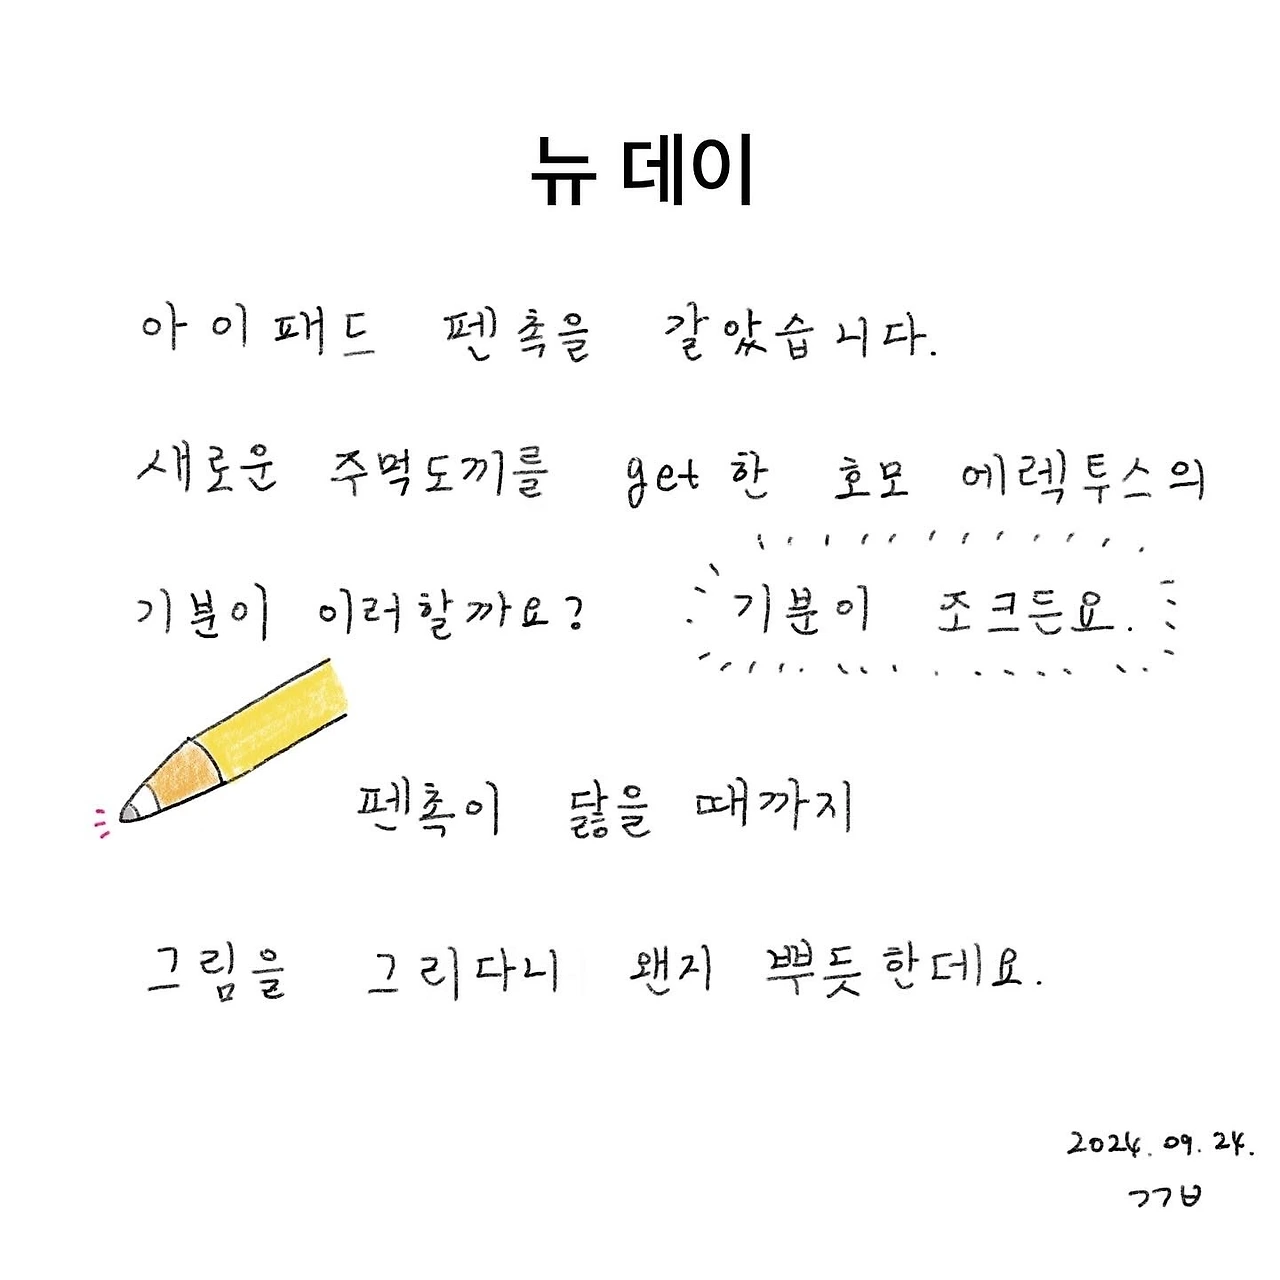 뉴 데이
아이패드 펜촉을 갈았습니다.
새로운 주먹도끼를 get한 호모 에렉투스의
기분이 이러할까요? 기분이 조크든요.
펜촉이 닳을 때까지
그림을 그리다니 왠지 뿌듯한데요.
2024. 09. 24.
ㄱㄱㅂ